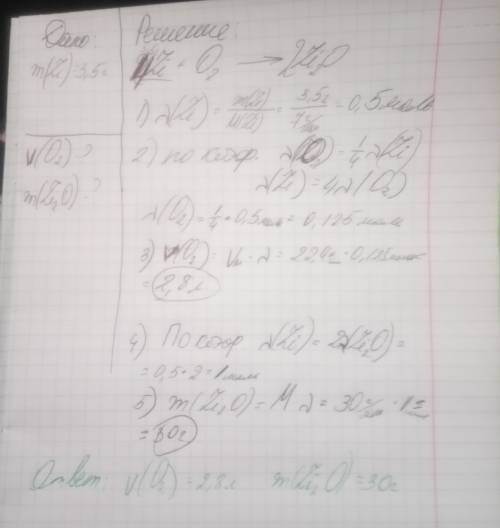 Дано:
m(Li)=3,5г
V(O₂)?
m(Li₂O)?
Решение:
4Li + O₂ → 2Li₂O
1) λ(Li) = m(Li)/M(Li) = 3,5г/7 г/моль = 0,5 моль
2) по коэф. λ(O₂) = 1/4 λ(Li)
λ(Li) = 4λ(O₂)
λ(O₂) = 1/4 · 0,5 моль = 0,125 моль
3) V(O₂) = Vм · λ = 22,4 · 0,125
= 2,8 л
4) По коэф λ(Li) = 2λ(Li₂O) =
= 0,5 · 2 = 1 моль
5) m(Li₂O) = M λ = 30 г/моль · 1
= 30г
Ответ: V(O₂) = 2,8 л m(Li₂O) = 30г